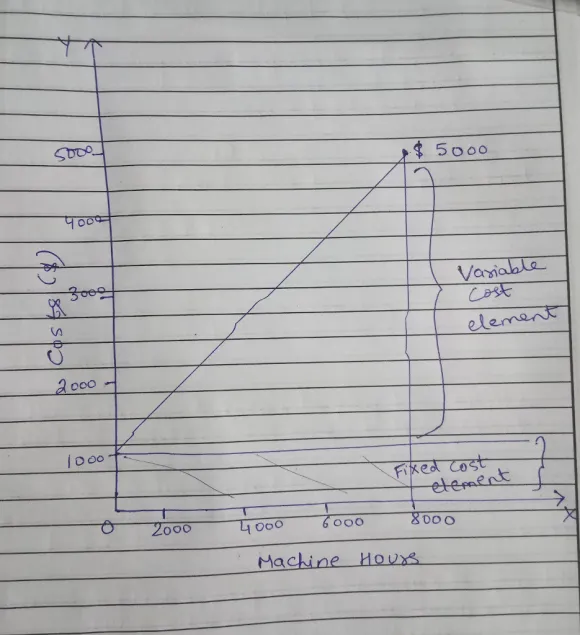 Y
5000
$ 5000
4000
Variable
cost
element
3000
Costs ($)
2000
1000
Fixed cost
element
0
2000
4000
6000
8000
X
Machine Hours